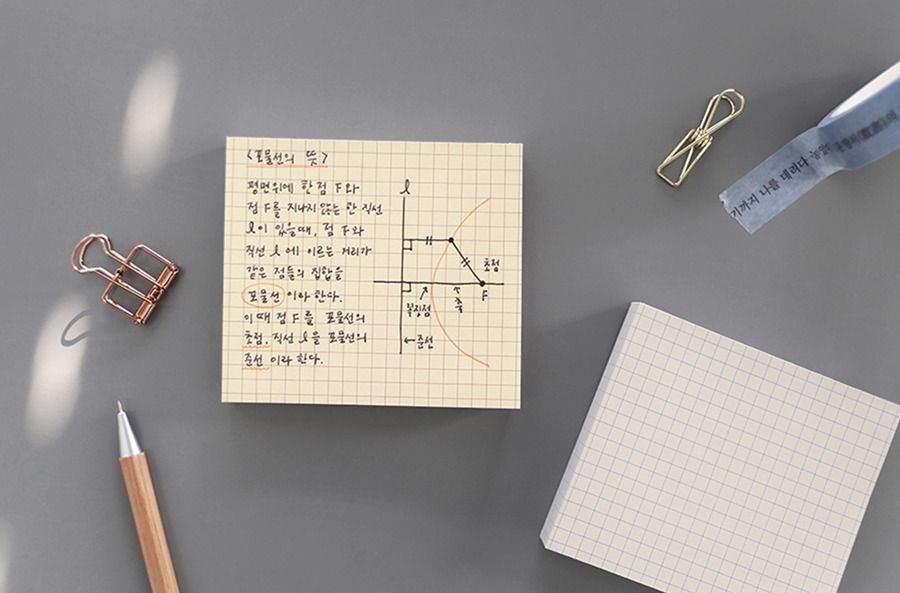 <포물선의 뜻>
평면위에 한 점 F와
점 F를 지나지 않는 한 직선
l이 있을때, 점 F와
직선 l에 이르는 거리가
같은 점들의 집합을
포물선 이라 한다.
이 때 점 F를 포물선의
초점, 직선 l을 포물선의
준선 이라 한다.
l
초점
F
꼭짓점
축
←준선
기까지 나를 데려다 놓았